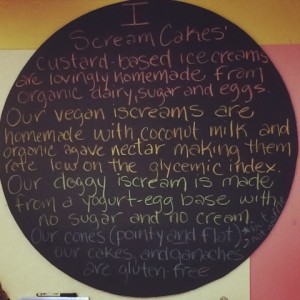 I
Scream Cakes'
custard-based ice creams
are lovingly homemade from
organic dairy, sugar and eggs.
Our vegan iscreams are
homemade with coconut milk and
organic agave nectar making them
rate low on the glycemic index.
Our doggy iscream is made
from a yogurt-egg base with
no sugar and no cream.
Our cones (pointy and flat),
our cakes, and ganaches
are gluten-free